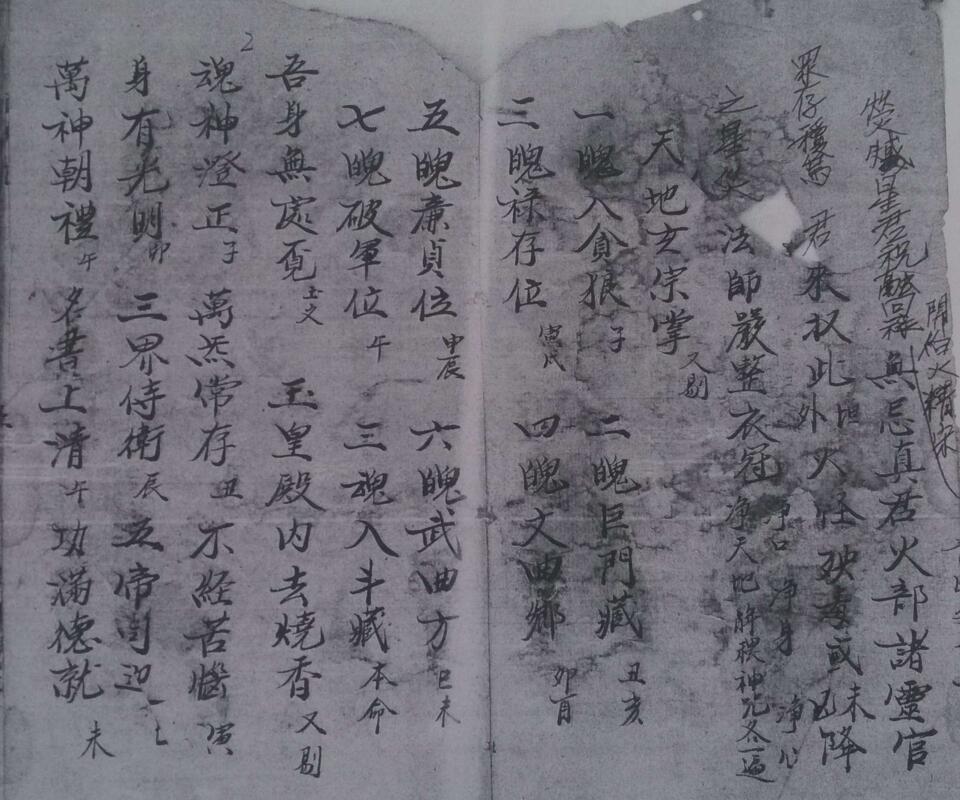 熒惑星君祝融星 無忌真君火部諸靈官
眾存 君來収此外火 殃 或未降
之星 法師嚴整衣冠 淨口 淨身 淨心
淨天地解穢神咒各一遍
天地玄宗掌 又剔
一魄入貪狼 子 二魄巨門藏 丑亥
三魄禄存位 寅戌 四魄文曲鄉 卯酉
五魄廉貞位 申辰 六魄武曲方 巳未
七魄破軍位 午 三魂入斗藏 本命
吾身無處覓 玉皇殿内去燒香 又剔
魂神澄正 子 萬炁常存 丑 不経苦惱 寅
身有光明 卯 三界侍衛 辰 五帝司迎 巳
萬神朝禮 午 名書上清 午 功滿德就 未
2